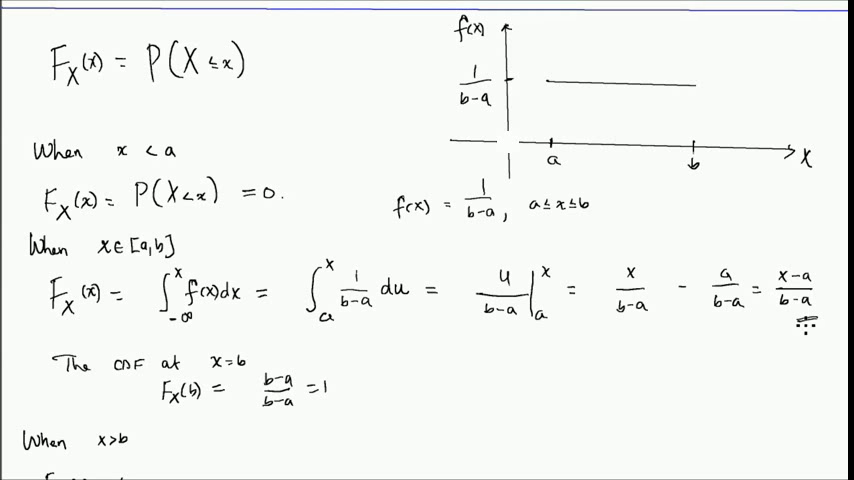 F_X(x) = P(X ≤ x)
f(x)
1/(b-a)
a b X
When x < a
F_X(x) = P(X < x) = 0.
f(x) = 1/(b-a), a ≤ x ≤ b
When x ∈ [a,b]
F_X(x) = ∫_{-∞}^{x} f(x)dx = ∫_{a}^{x} 1/(b-a) du = u/(b-a) |_{a}^{x} = x/(b-a) - a/(b-a) = (x-a)/(b-a)
The CDF at x=b
F_X(b) = (b-a)/(b-a) = 1
When x>b